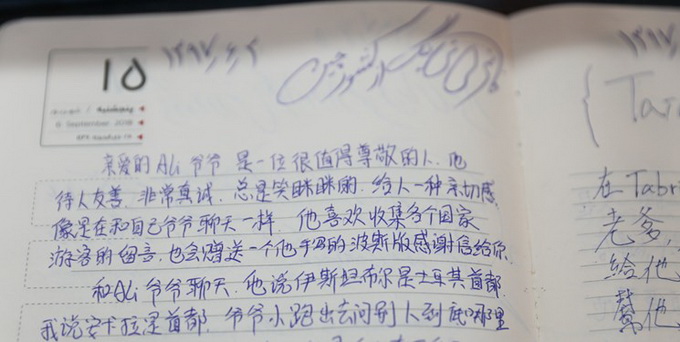 ۱۵
6 September 2018
亲爱的Ali爷爷 是一位很值得尊敬的人. 他
待人友善, 非常真诚. 总是笑眯眯的. 给人一种亲切感
像是在和自己爷爷聊天一样. 他喜欢收集各个国家
游客的留言, 也会赠送一个他手写的波斯版感谢信给你.
和Ali爷爷聊天. 他说伊斯坦布尔是土耳其首都.
我说安卡拉是首都. 爷爷小跑出去问别人到底哪里
在Tabr
老爹,
给他
幫他